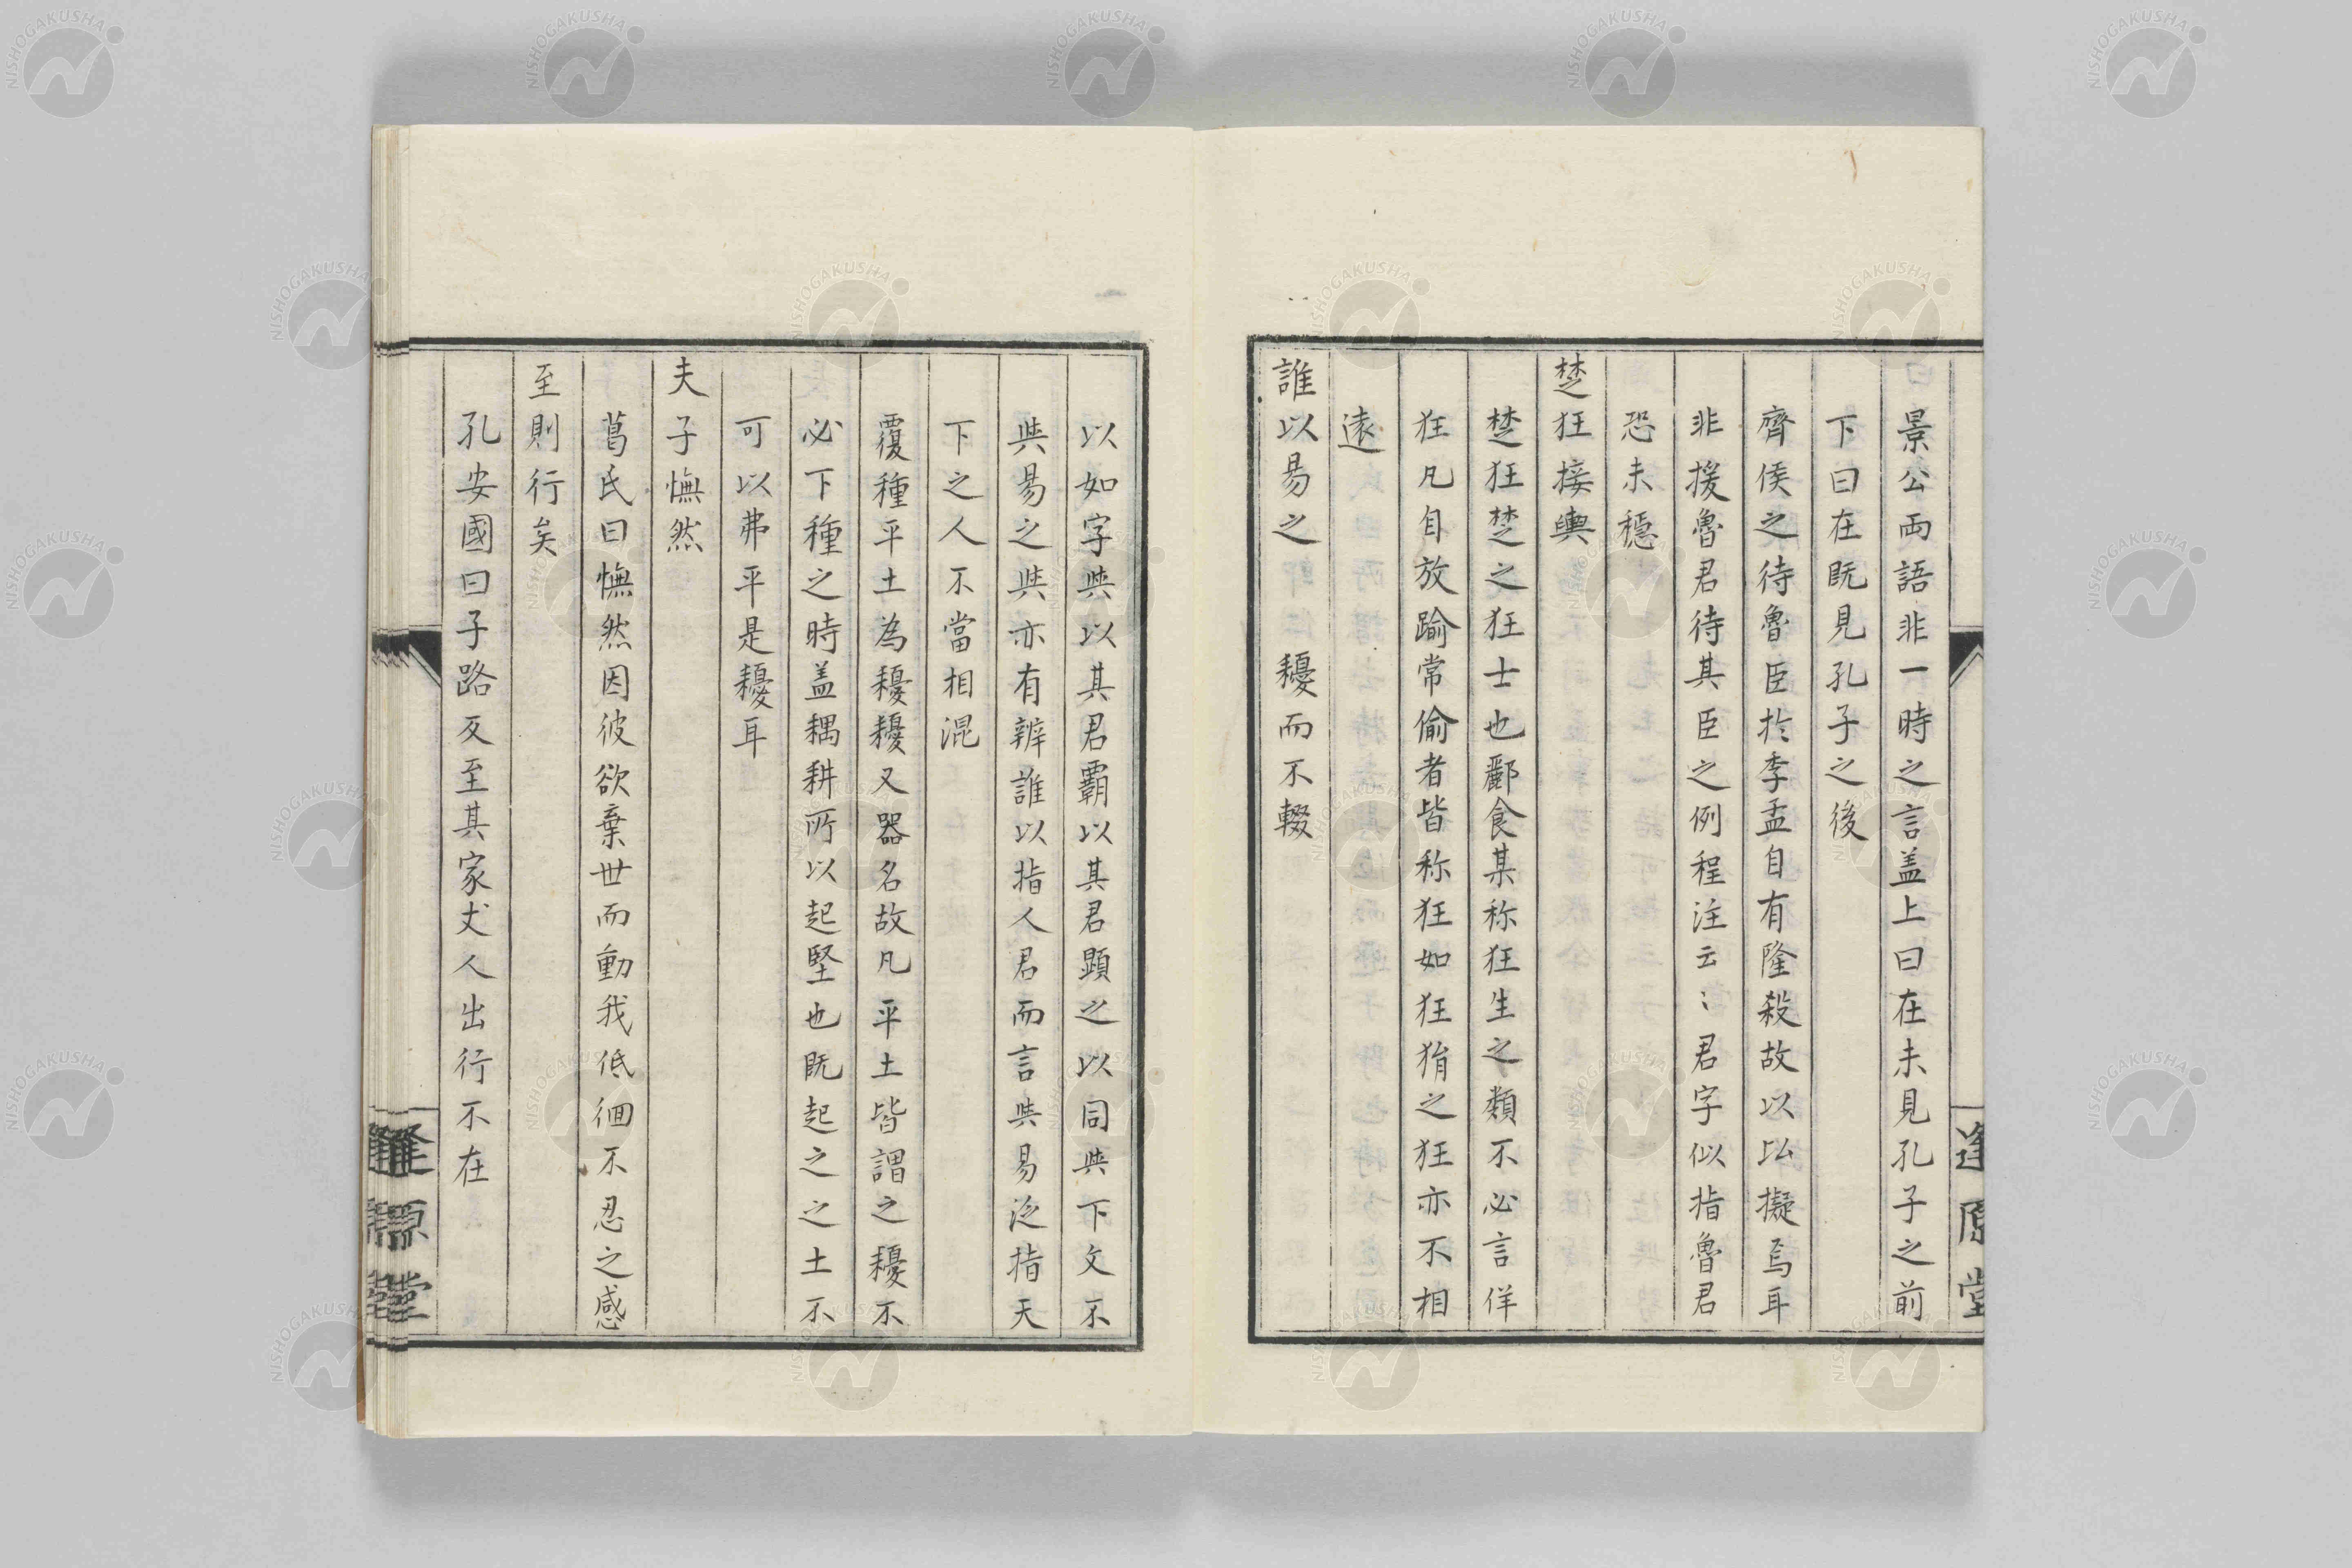 景公両語非一時之言盖上曰在未見孔子之前
下曰在既見孔子之後
齊侯之待魯臣扵季孟自有隆殺故以㕥擬焉耳
非援魯君待其臣之例程注云〻君字似指魯君
恐未穏
楚狂接輿
楚狂楚之狂士也酈食其称狂生之類不必言佯
狂凡自放踰常偷者皆称狂如狂狷之狂亦不相
遠
誰以易之　耰而不輟
以如字與以其君霸以其君顕之以同與下文不
與易之與亦有辨誰以指人君而言與易泛指天
下之人不當相混
覆種平土為耰耰又器名故凡平土皆謂之耰不
必下種之時盖耦耕所以起堅也既起之之土不
可以弗平是耰耳
夫子憮然
葛氏曰憮然因彼欲棄世而動我低徊不忍之感
至則行矣
孔安國曰子路反至其家丈人出行不在
逢原堂